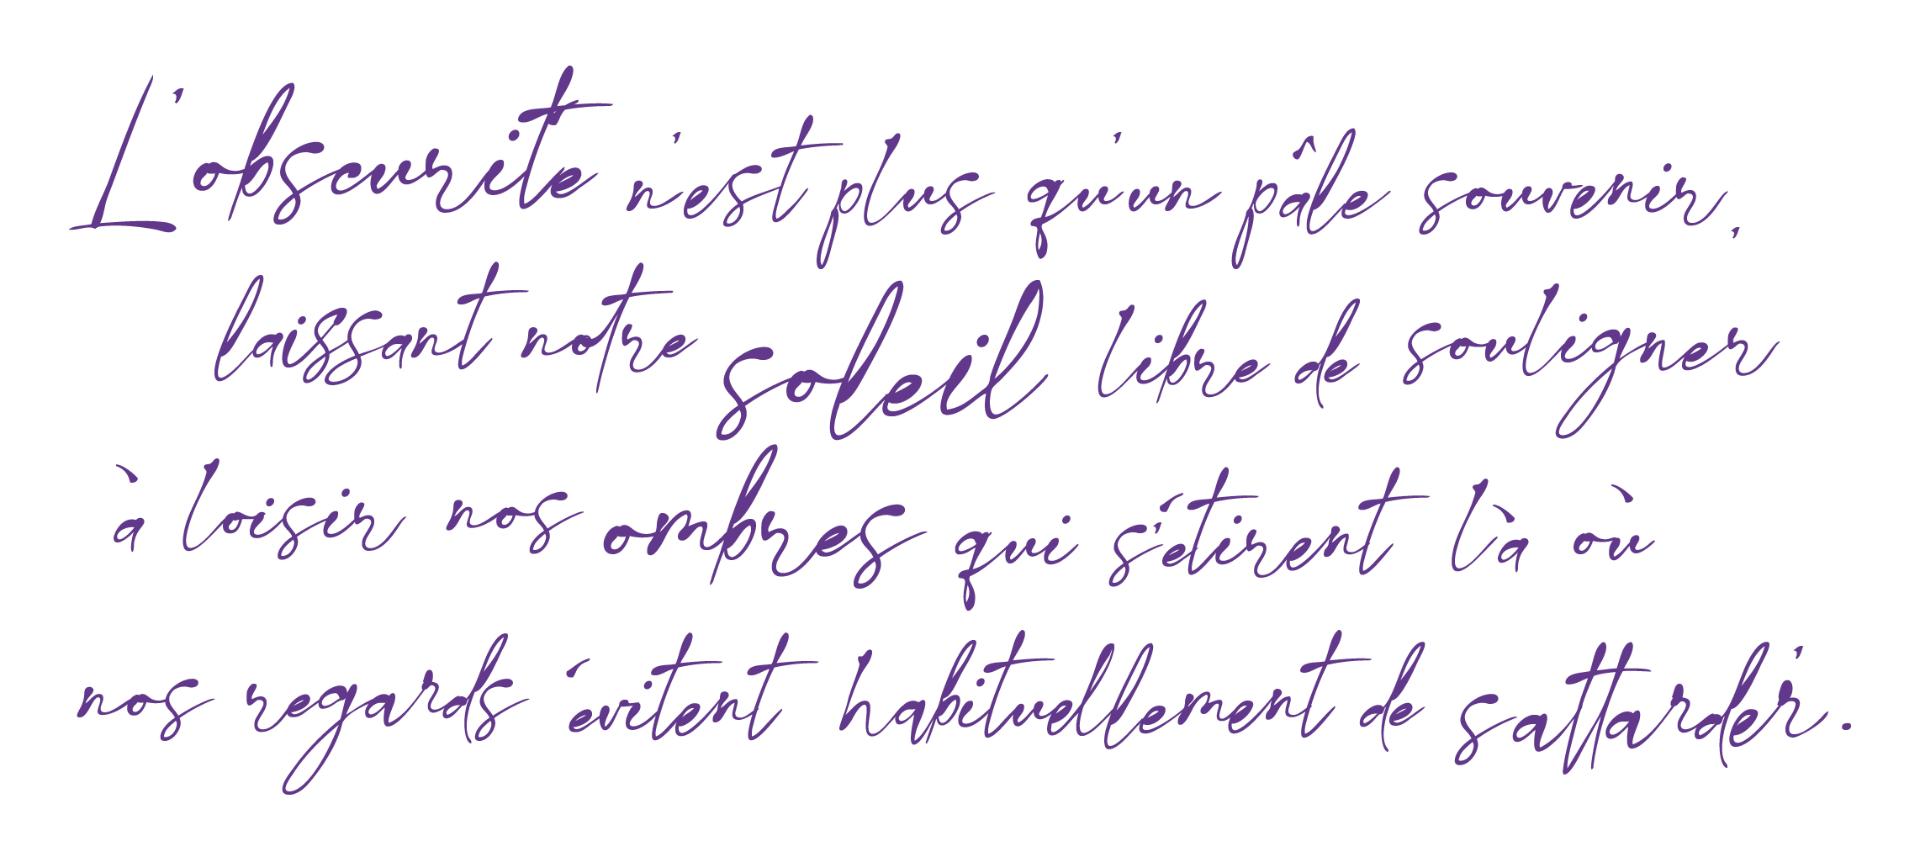 L'obscurité n'est plus qu'un pâle souvenir,
laissant notre soleil libre de souligner
à loisir nos ombres qui s'étirent là où
nos regards évitent habituellement de s'attarder.